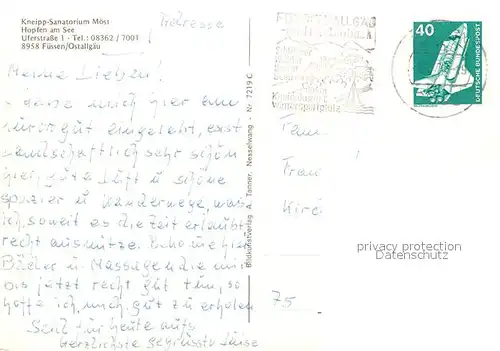 Kneipp-Sanatorium Möst
Hopfen am See
Uferstraße 1 - Tel.: 08362 / 7001
8958 Füssen/Ostallgäu
Adresse
Meine Lieben!
habe mich hier am
Kurort gut eingelebt, es ist
landschaftlich sehr schön
hier, gute Luft u schöne
Spazier u Wanderwege, was
ich, soweit es die Zeit erlaubt
recht ausnütze. Bekomme hier
Bäder u. Massagen die mir
bis jetzt recht gut tun, so
hoffe ich, mich gut zu erholen
Seid für heute aufs
herzlichste begrüsst Luise
Bildkunstverlag A. Tanner, Nesselwang - Nr. 7219 C
40
DEUTSCHE BUNDESPOST
Fam.
Frau
75
privacy protection
Datenschutz